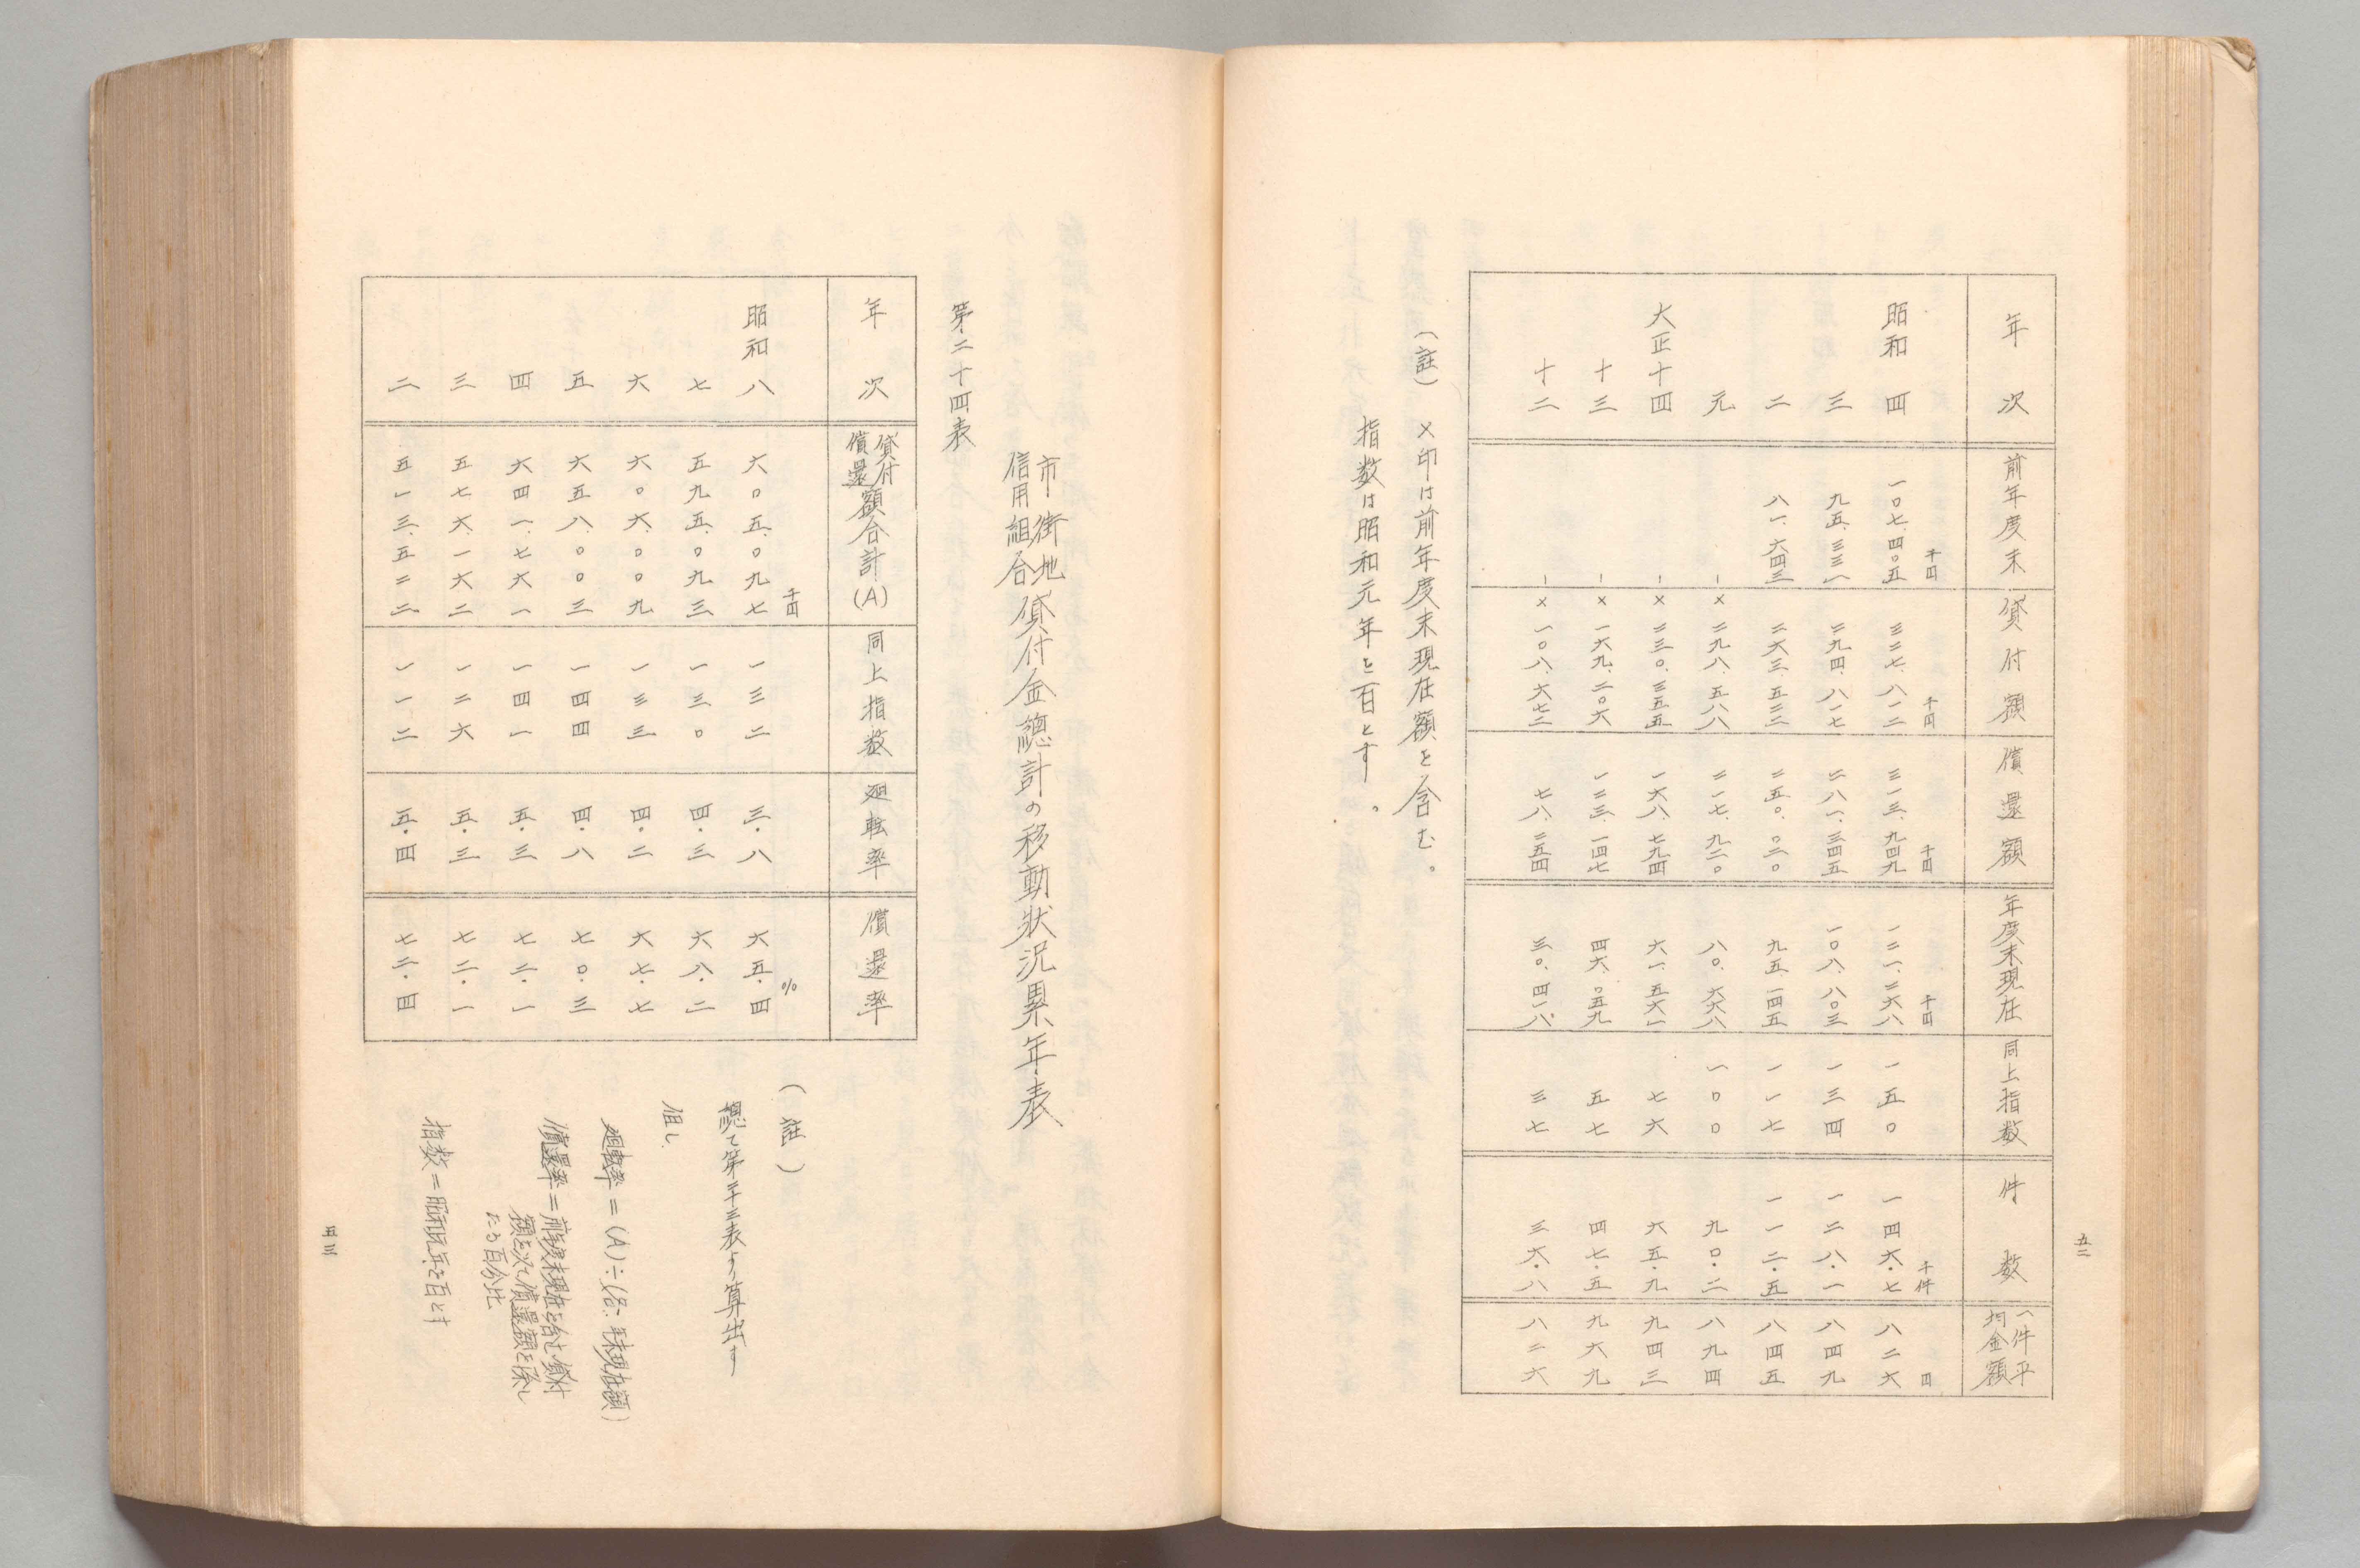 五二
年次 前年度末 貸付額 償還額 年度末現在 同上指数 件数 一件平均金額
千円 千円 千円 千円 千件 円
昭和四 一〇七、四〇五 三二七、八一二 三一三、九四九 一二一、二六八 一五〇 一四六・七 八二六
三 九五、三三一 二九四、八一七 二八一、三四五 一〇八、八〇三 一三四 一二八・一 八四九
二 八一、六四三 二六三、五二二 二五〇、〇二〇 九五、一四五 一一七 一一二・五 八四五
元 － ×二九八、五八八 二一七、九二〇 八〇、六六八 一〇〇 九〇・二 八九四
大正十四 － ×二三〇、三五五 一六八、七九四 六一、五六一 七六 六五・九 九四三
十三 － ×一六九、二〇六 一二三、一四七 四六、〇五九 五七 四七・五 九六九
十二 － ×一〇八、六七二 七八、二五四 三〇、四一八 三七 三六・八 八二六
（註） ×印は前年度末現在額を含む。
指数は昭和元年を百とす。
市街地信用組合貸付金總計の移動狀況累年表
第二十四表
年次 貸付償還額合計(A) 同上指数 廻転率 償還率
千円 %
昭和八 六〇五、〇九七 一三二 三・八 六五・四
七 五九五、〇九三 一三〇 四・三 六八・二
六 六〇六、〇〇九 一三三 四・二 六七・七
五 六五八、〇〇三 一四四 四・八 七〇・三
四 六四一、七六一 一四一 五・三 七二・一
三 五七六、一六二 一二六 五・三 七二・一
二 五一三、五二二 一一二 五・四 七二・四
（註）
總て第二十三表より算出す
但し
廻転率＝(A)÷
償還率＝前年度末現在を含む貸付
額を以て償還額を除し
たる百分比
指数＝昭和元年を百とす
五三